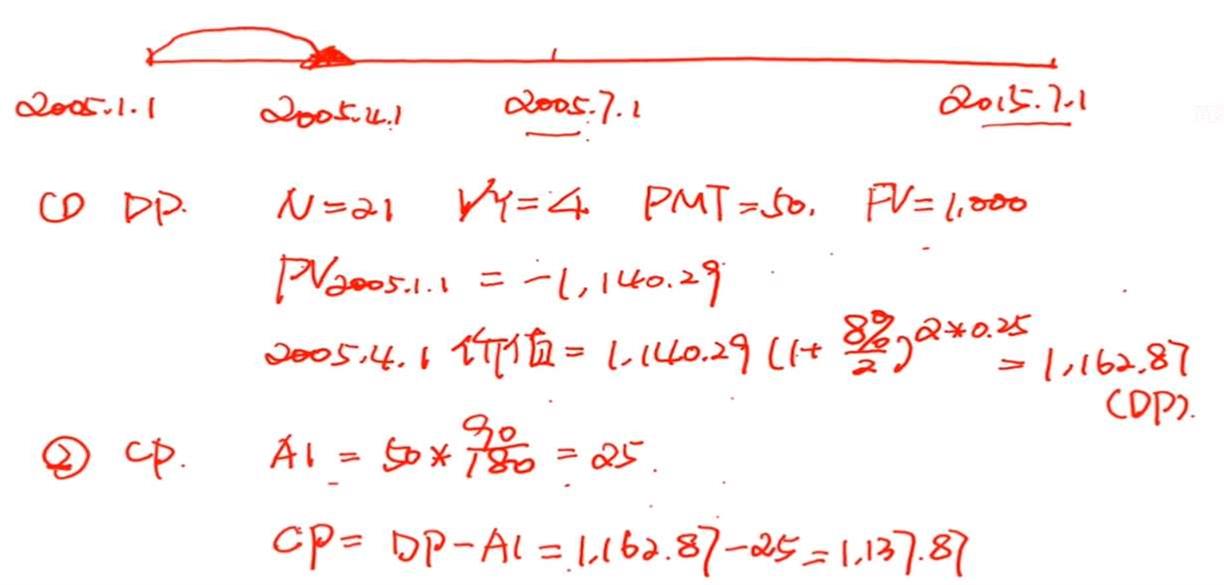 2005.1.1 2005.4.1 2005.7.1 2015.7.1
① DP. N=21 I/Y=4 PMT=50. FV=1,000
PV2005.1.1 = -1,140.29
2005.4.1 价值 = 1,140.29 (1+ 8%/2)^2*0.25 = 1,162.87
(DP).
② CP. AI = 50 * 90/180 = 25.
CP = DP-AI = 1,162.87-25=1,137.87